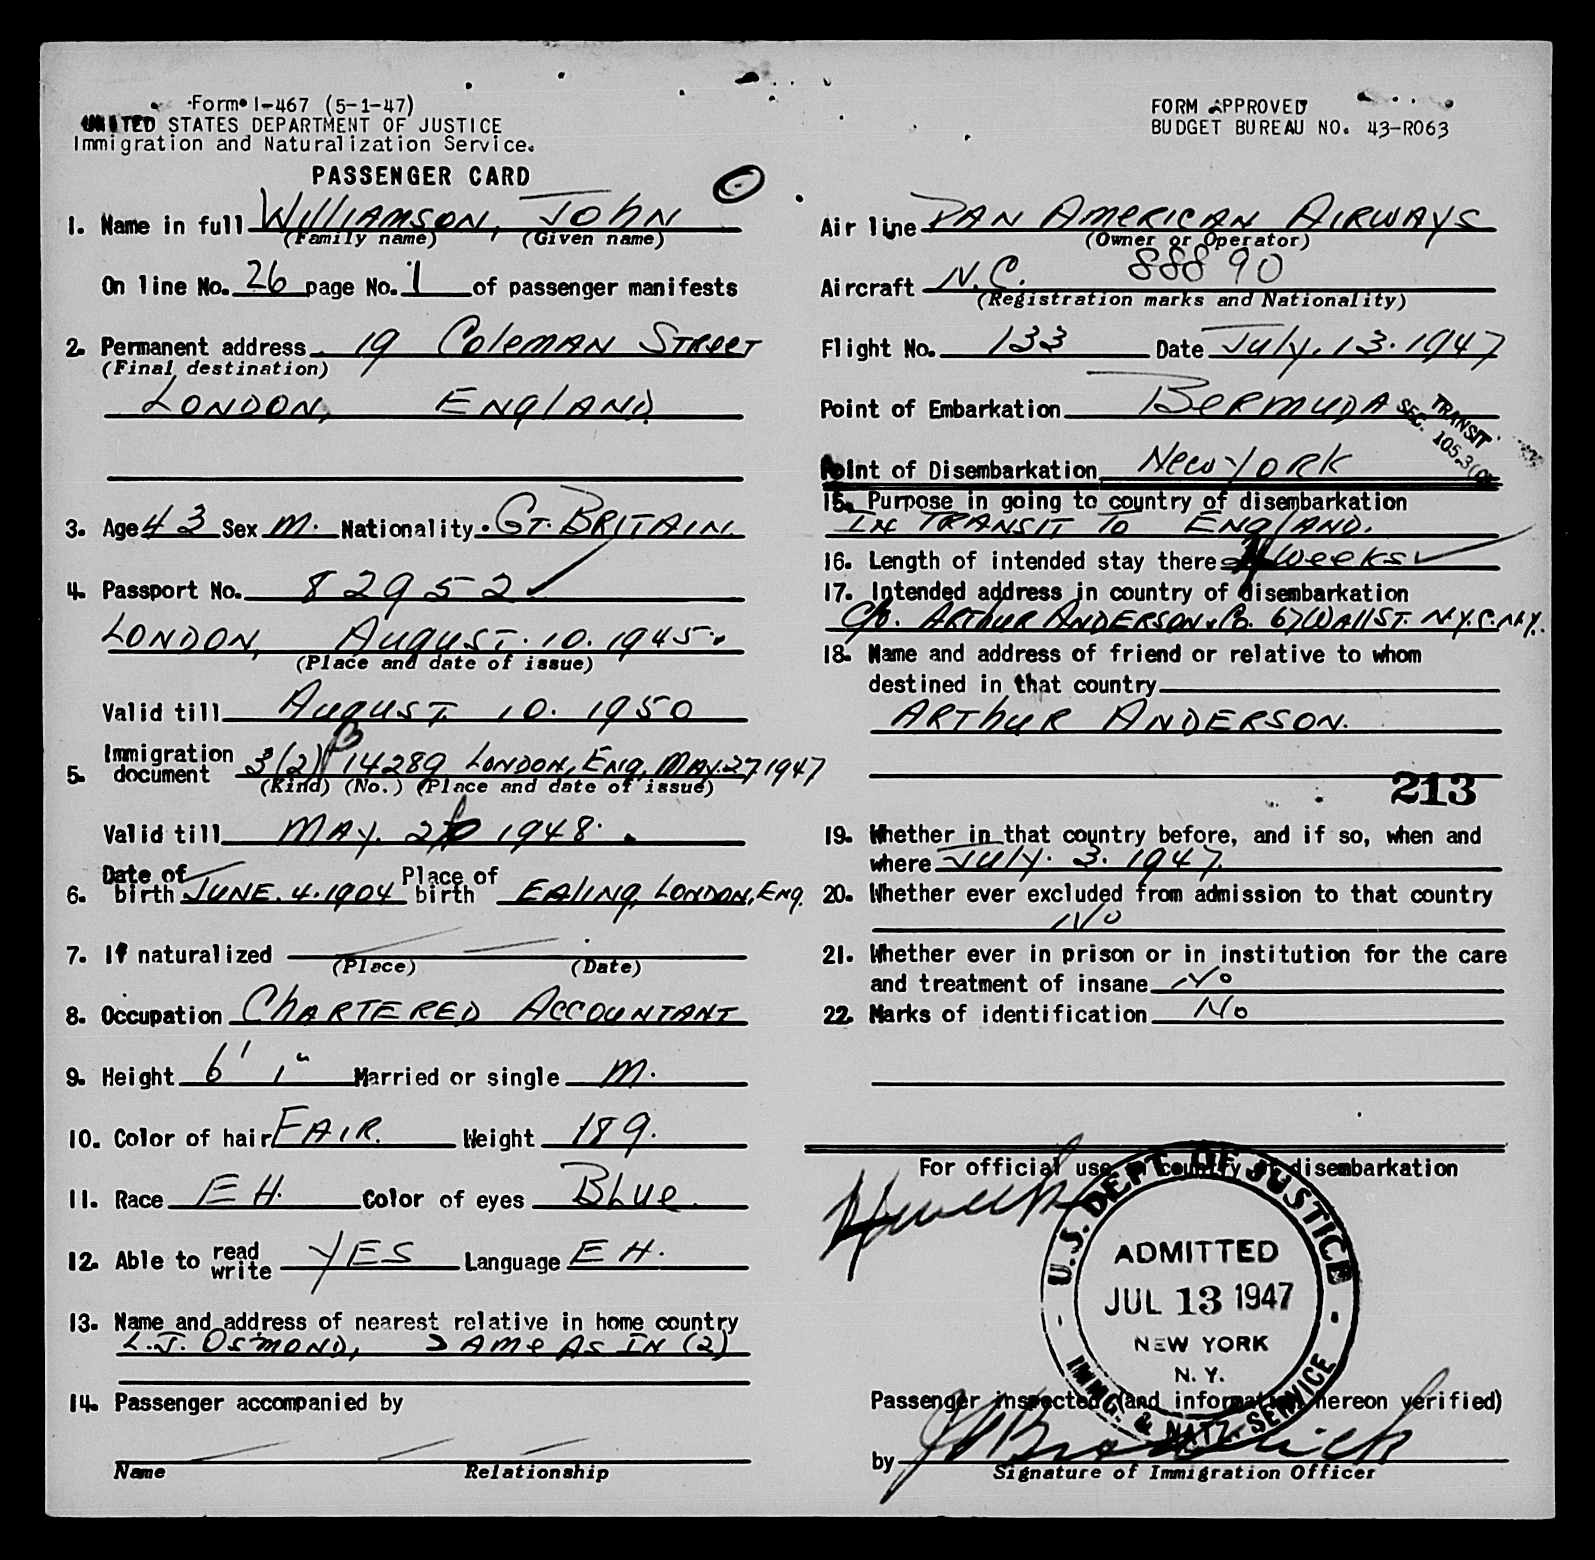 Form I-467 (5-1-47)
UNITED STATES DEPARTMENT OF JUSTICE
Immigration and Naturalization Service.
PASSENGER CARD
1. Name in full Williamson, John
(Family name) (Given name)
On line No. 26 page No. 1 of passenger manifests
2. Permanent address 19 Coleman Street
(Final destination)
London, England.
3. Age 43 Sex M. Nationality Gt. Britain.
4. Passport No. 82952
London, August. 10. 1945.
(Place and date of issue)
Valid till August. 10. 1950
5. Immigration document 3(2) 14289 London, Eng, May. 27 1947
(Kind) (No.) (Place and date of issue)
Valid till May. 1948.
6. Date of birth June. 4. 1904 Place of birth Ealing, London, Eng.
7. If naturalized
(Place) (Date)
8. Occupation Chartered Accountant
9. Height 6' 1" Married or single M.
10. Color of hair Fair. Weight 189.
11. Race EH. Color of eyes Blue.
12. Able to read write Yes Language EH.
13. Name and address of nearest relative in home country
L.J. Osmond, Same as in (2)
14. Passenger accompanied by
Name Relationship
FORM APPROVED
BUDGET BUREAU NO. 43-R063
Air line Pan American Airways
(Owner or Operator)
Aircraft N.C. 88890
(Registration marks and Nationality)
Flight No. 133 Date July. 13. 1947
Point of Embarkation Bermuda
TRANSIT
SEC. 105.3
Point of Disembarkation New York
15. Purpose in going to country of disembarkation
In Transit to England.
16. Length of intended stay there weeks
17. Intended address in country of disembarkation
c/o. Arthur Anderson & Co. 67 Wall St. N.Y.C. N.Y.
18. Name and address of friend or relative to whom
destined in that country
Arthur Anderson.
213
19. Whether in that country before, and if so, when and
where July. 3. 1947.
20. Whether ever excluded from admission to that country
No
21. Whether ever in prison or in institution for the care
and treatment of insane No
22. Marks of identification No
For official use in country of disembarkation
U.S. DEPT OF JUSTICE
ADMITTED
JUL 13 1947
NEW YORK
N. Y.
IMMG. & NATZ. SERVICE
Passenger inspected (and information hereon verified)
by
Signature of Immigration Officer